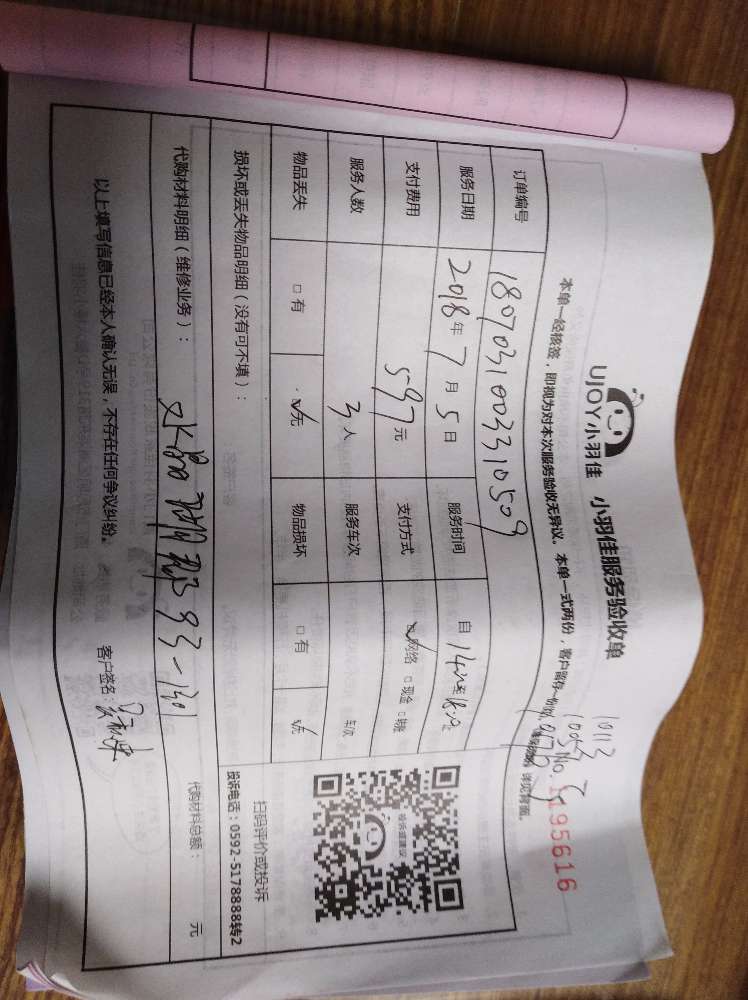 UJOY小羽佳 小羽佳服务验收单
10113
本单一经核签，即视为对本次服务验收无异议。本单一式两份，客户留存一份 详见背面。
No. 1195616
订单编号 180703100331 0509
服务日期 2018年7月5日 服务时间 自
支付费用 597元 支付方式 网络 现金 转账
服务人数 3人 服务车次 车次
物品丢失 有 无 物品损坏 有 无
扫码评价或投诉
投诉电话：0592-5178888转2
投诉或建议
损坏或丢失物品明细（没有可不填）：
代购材料明细（维修业务）： 水晶湖郡93-1301 代购材料总额： 元
以上填写信息已经本人确认无误，不存在任何争议纠纷。 客户签名：